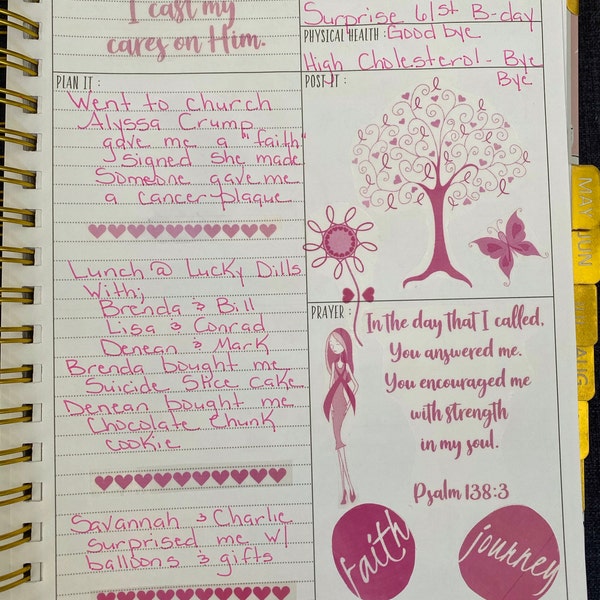 I cast my
cares on Him.
Surprise 61st B-day
PHYSICAL HEALTH: Good bye
High Cholesterol - Bye
Bye
PLAN IT :
Went to church
Alyssa Crump
gave me a "faith"
signed she made
Someone gave me
a cancer plaque
Lunch @ Lucky Dills
With;
Brenda & Bill
Lisa & Conrad
Denean & Mark
Brenda bought me
Suicide Spice cake
Denean bought me
Chocolate Chunk
cookie
Savannah & Charlie
surprised me w/
balloons & gifts
POST IT :
PRAYER :
In the day that I called,
You answered me.
You encouraged me
with strength
in my soul.
Psalm 138:3
faith
journey
MAY
JUN
AUG